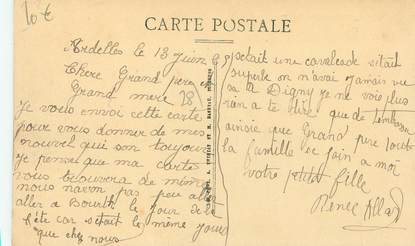 10€
CARTE POSTALE
Ardelles le 13 juin
Chere Grand pere
Grand mere 28
Je vous envoi cette carte
pour vous donner de mes
nouvel qui son toujour
Je pense que ma carte
vous trouvera de mime
nous navon pas peu
aller a Bourth le jour de la
fête car setait le même jour
que chez nous
setait une cavalcade setait
superbe on n'avai jamais vu
sa a Digny je ne vois plus
rien a te dire que de tembrase
ainsie que Grand pere toute
la famille et join a moi
votre petite fille
Renée Allard